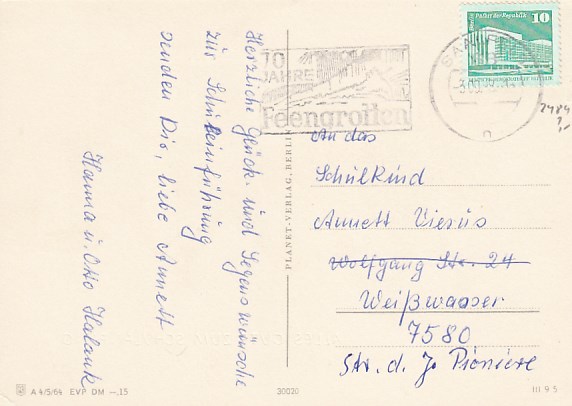 Herzliche Glück- und Segenswünsche
zur Schuleinführung
senden Dir, liebe Annett
Hanna u. Otto Halank
Berlin, Palast der Republik 10
70
JAHRE
Feengrotten
PLANET-VERLAG, BERLIN
An das
Schulkind
Annett Vierus
Wolfgang Str. 24
Weißwasser
7580
Str. d. J. Pioniere
A 4/5/64 EVP DM –.15
30020
III 9 5